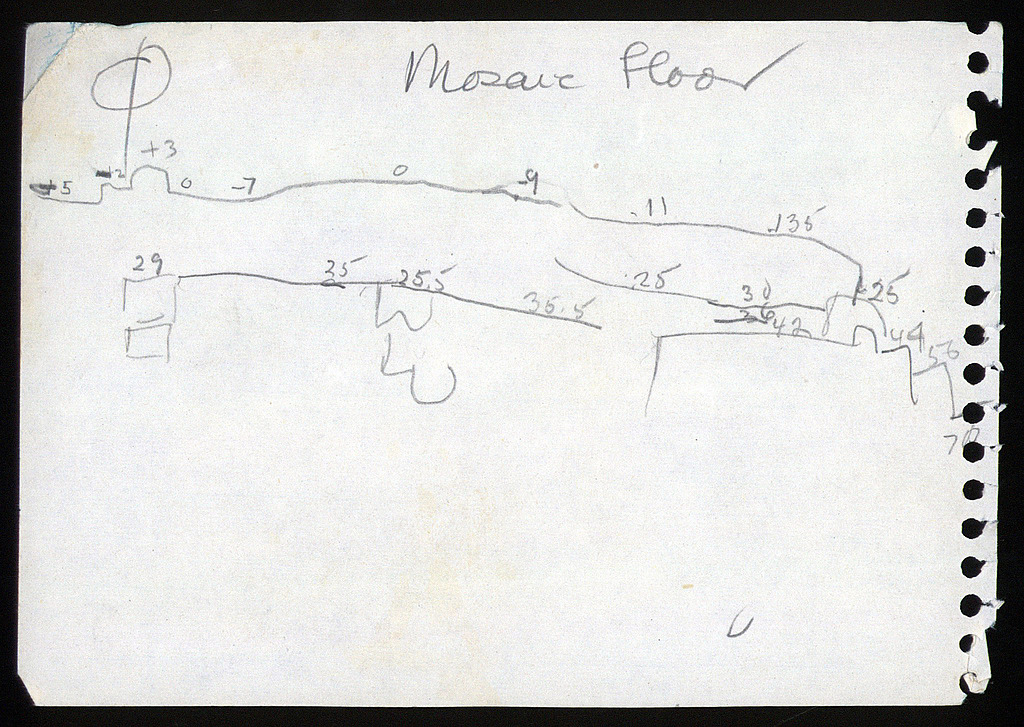 Mosaic Floor
+3
+5 +2 0 -7 0 -9
-11 -135
29 35 -25.5 35.5 -25 30 -25
36 42 44 56